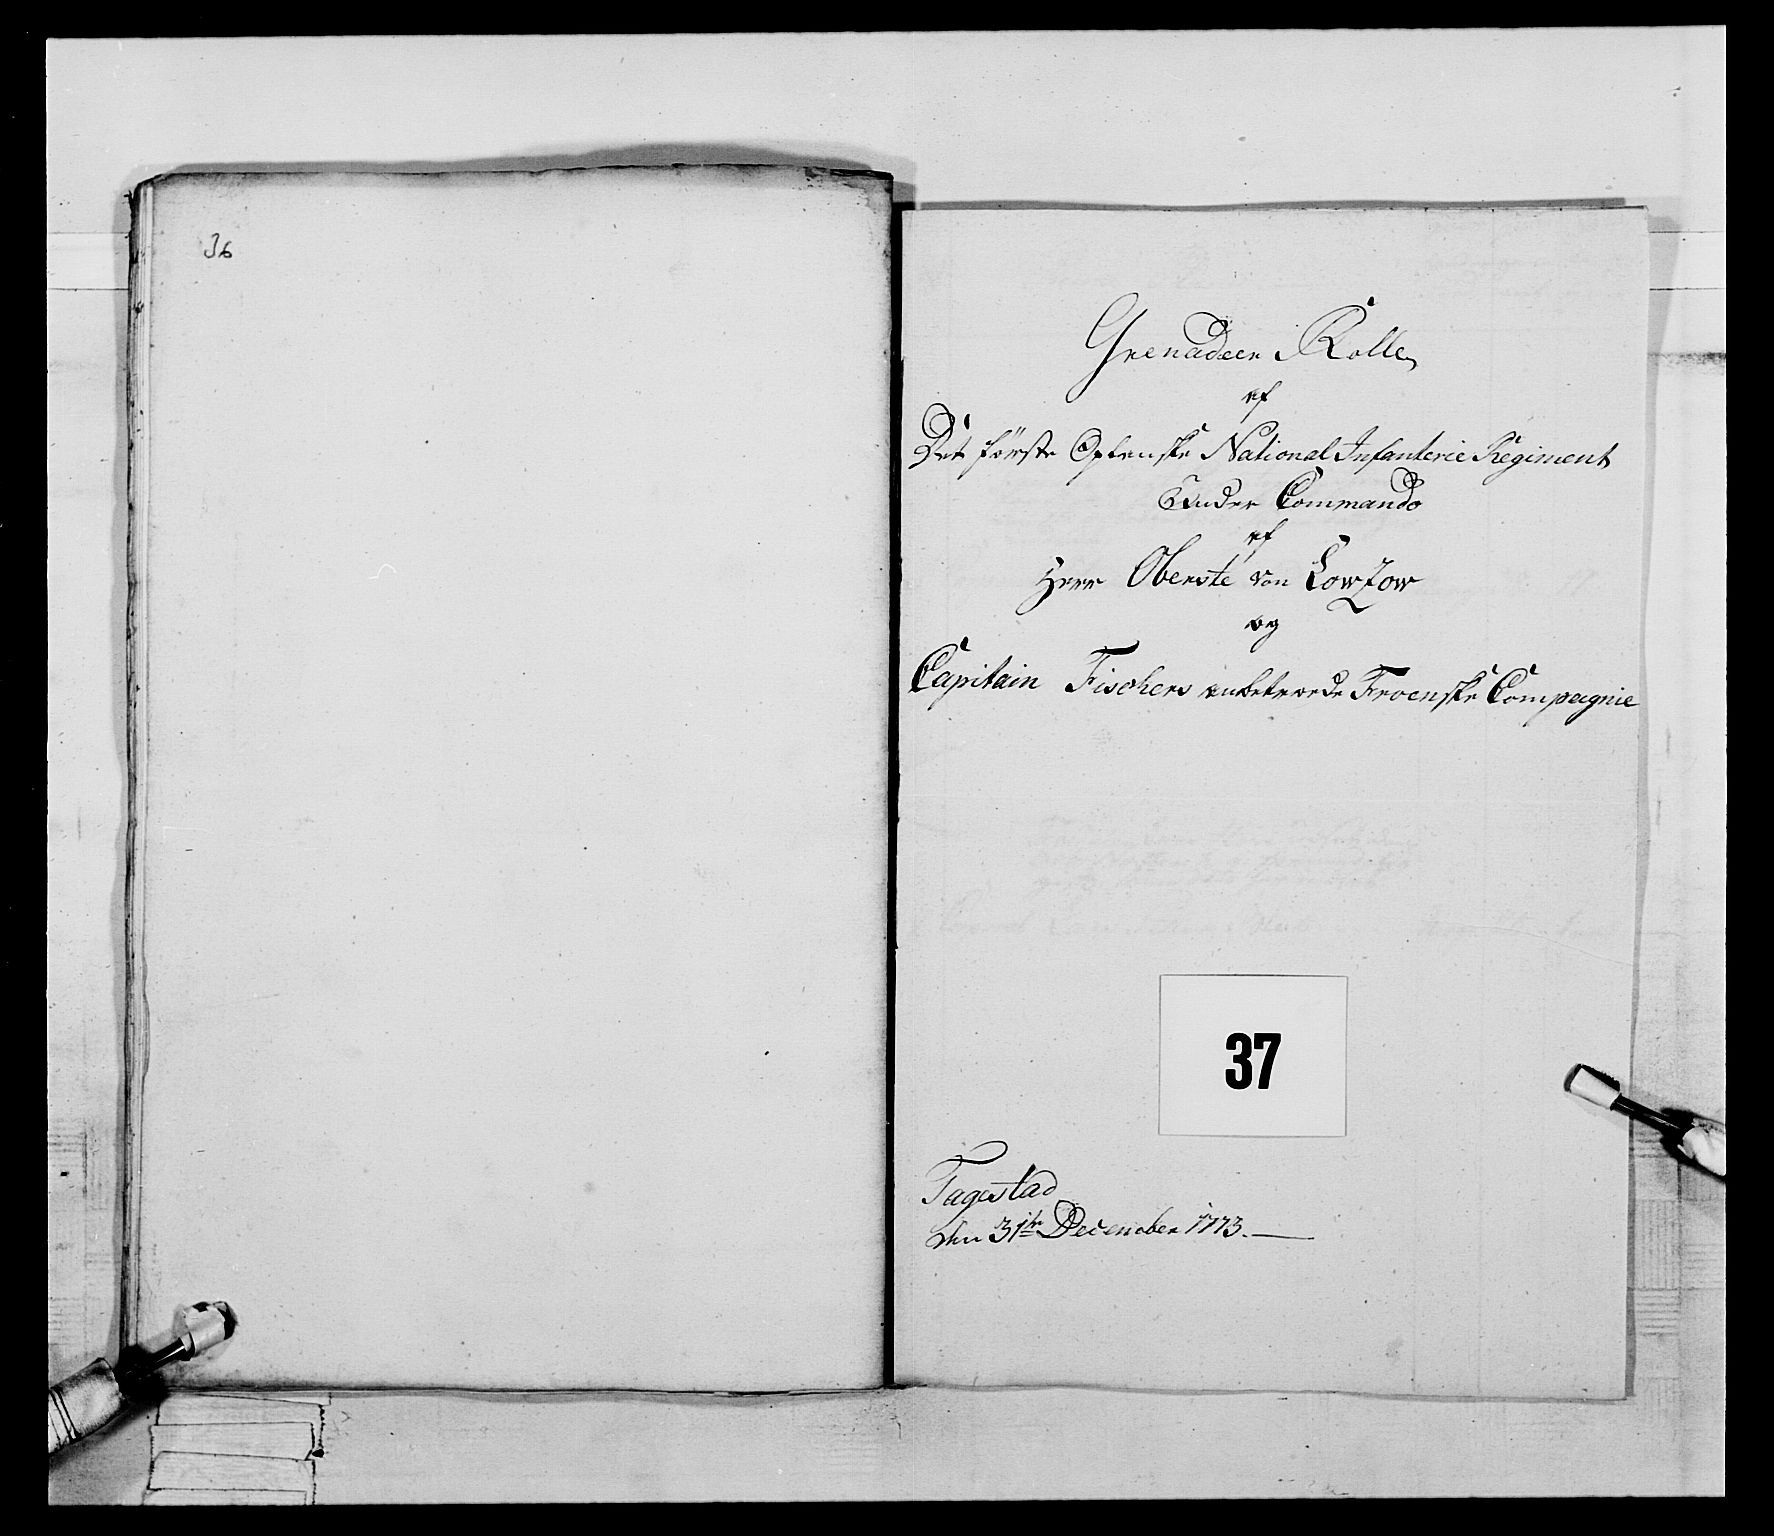 36
Grenadeer Rolle
af
Det første Oplenske National Infanterie Regiment
Under Commando
af
Herr Oberste von Lowzow
og
Capitain Fischers anbetroede Froenske Compagnie
37
Tagestad
den 31te December 1773.